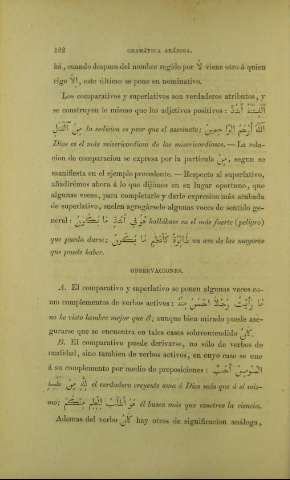 122 GRAMÁTICA ARÁBIGA.
há, cuando despues del nombre regido por لَا viene otro á quien
rige اِلَّا, este último se pone en nominativo.
Los comparativos y superlativos son verdaderos atributos, y
se construyen lo mismo que los adjetivos positivos: اَلْفِتْنَةُ اَشَدُّ
مِنَ الْقَتْلِ la sedicion es peor que el asesinato; اَللّٰهُ اَرْحَمُ الرَّاحِمِينَ
Dios es el más misericordioso de los misericordiosos. — La rela-
cion de comparacion se expresa por la partícula مِنْ, segun se
manifiesta en el ejemplo precedente. — Respecto al superlativo,
añadirémos ahora á lo que dijimos en su lugar oportuno, que
algunas veces, para completarle y darle expresion más acabada
de superlativo, suelen agregársele algunas voces de sentido ge-
neral: هُوَ فِي اَشَدِّ مَا يَكُونُ hallábase en el más fuerte (peligro)
que puede darse; كَأَعْظَمِ مَا يَكُونُ un ave de las mayores
que puede haber.
OBSERVACIONES.
A. El comparativo y superlativo se ponen algunas veces co-
mo complementos de verbos activos: مَا رَأَيْتُ رَجُلًا اَحْسَنَ مِنْهُ
no he visto hombre mejor que él; aunque bien mirado puede ase-
gurarse que se encuentra en tales casos sobreentendido كَانَ.
B. El comparativo puede derivarse, no sólo de verbos de
cualidad, sino tambien de verbos activos, en cuyo caso se une
á su complemento por medio de preposiciones: اَلْمُؤْمِنُ اَحَبُّ
لِلّٰهِ مِنْ نَفْسِهِ el verdadero creyente ama á Dios más que á sí mis-
mo; هُوَ اَطْلَبُ لِلْعِلْمِ مِنْكُمْ él busca más que vosotros la ciencia.
Ademas del verbo كَانَ hay otros de significacion análoga,